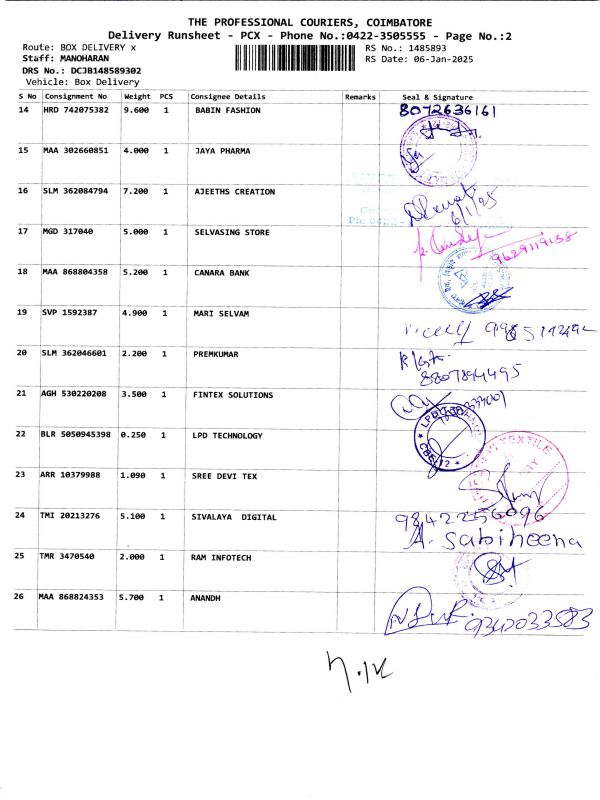 THE PROFESSIONAL COURIERS, COIMBATORE
Delivery Runsheet - PCX - Phone No.:0422-3505555 - Page No.:2
Route: BOX DELIVERY x
RS No.: 1485893
Staff: MANOHARAN
RS Date: 06-Jan-2025
DRS No.: DCJB148589302
Vehicle: Box Delivery
S No Consignment No Weight PCS Consignee Details Remarks Seal & Signature
14 HRD 742075382 9.600 1 BABIN FASHION 8072636161
15 MAA 302660851 4.000 1 JAYA PHARMA
16 SLM 362084794 7.200 1 AJEETHS CREATION 6/1/25
17 MGD 317040 5.000 1 SELVASING STORE 9629119158
18 MAA 868804358 5.200 1 CANARA BANK
19 SVP 1592387 4.900 1 MARI SELVAM
20 SLM 362046601 2.200 1 PREMKUMAR 8807894495
21 AGH 530220208 3.500 1 FINTEX SOLUTIONS
22 BLR 5050945398 0.250 1 LPD TECHNOLOGY
23 ARR 10379988 1.090 1 SREE DEVI TEX
24 TMI 20213276 5.100 1 SIVALAYA DIGITAL 9842256096
A. Sabiheena
25 TMR 3470540 2.000 1 RAM INFOTECH
26 MAA 868824353 5.700 1 ANANDH 9342033583